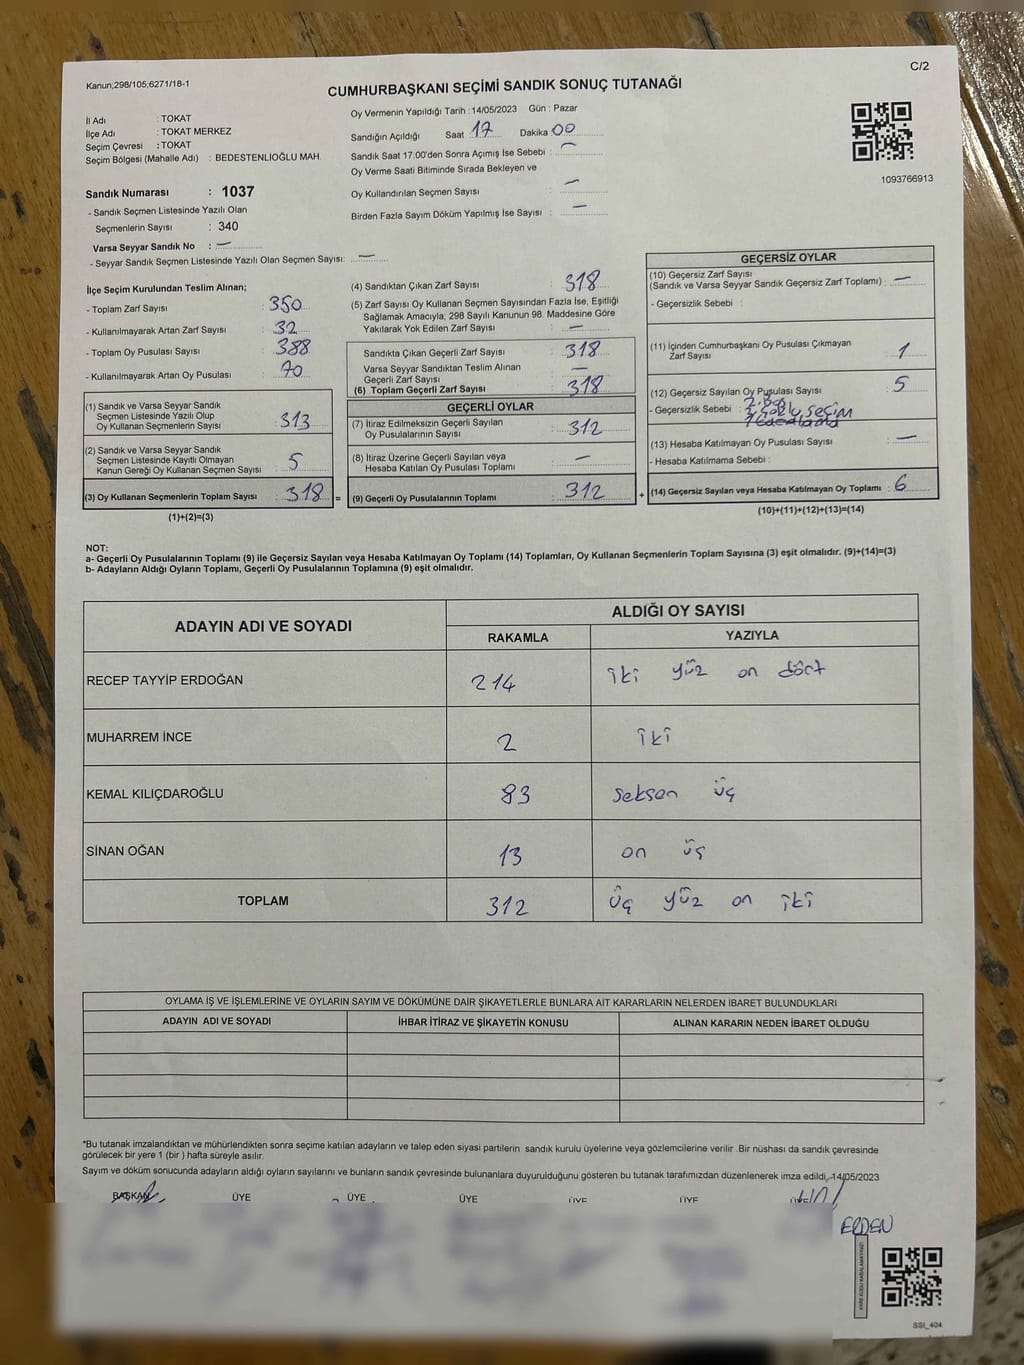 Kanun;298/105;6271/18-1
C/2
CUMHURBAŞKANI SEÇİMİ SANDIK SONUÇ TUTANAĞI
İl Adı : TOKAT
İlçe Adı : TOKAT MERKEZ
Seçim Çevresi : TOKAT
Seçim Bölgesi (Mahalle Adı) : BEDESTENLİOĞLU MAH.
Sandık Numarası : 1037
- Sandık Seçmen Listesinde Yazılı Olan
Seçmenlerin Sayısı : 340
Varsa Seyyar Sandık No : —
- Seyyar Sandık Seçmen Listesinde Yazılı Olan Seçmen Sayısı: —
Oy Vermenin Yapıldığı Tarih : 14/05/2023 Gün : Pazar
Sandığın Açıldığı Saat 17 Dakika 00
Sandık Saat 17:00'den Sonra Açımış İse Sebebi : —
Oy Verme Saati Bitiminde Sırada Bekleyen ve
Oy Kullandırılan Seçmen Sayısı : —
Birden Fazla Sayım Döküm Yapılmış İse Sayısı : —
1093766913
İlçe Seçim Kurulundan Teslim Alınan;
- Toplam Zarf Sayısı : 350
- Kullanılmayarak Artan Zarf Sayısı : 32
- Toplam Oy Pusulası Sayısı : 388
- Kullanılmayarak Artan Oy Pusulası : 70
(1) Sandık ve Varsa Seyyar Sandık
Seçmen Listesinde Yazılı Olup
Oy Kullanan Seçmenlerin Sayısı : 313
(2) Sandık ve Varsa Seyyar Sandık
Seçmen Listesinde Kayıtlı Olmayan
Kanun Gereği Oy Kullanan Seçmen Sayısı : 5
(3) Oy Kullanan Seçmenlerin Toplam Sayısı : 318 =
(1)+(2)=(3)
(4) Sandıktan Çıkan Zarf Sayısı : 318
(5) Zarf Sayısı Oy Kullanan Seçmen Sayısından Fazla İse, Eşitliği
Sağlamak Amacıyla; 298 Sayılı Kanunun 98. Maddesine Göre
Yakılarak Yok Edilen Zarf Sayısı : —
Sandıkta Çıkan Geçerli Zarf Sayısı : 318
Varsa Seyyar Sandıktan Teslim Alınan
Geçerli Zarf Sayısı : —
(6) Toplam Geçerli Zarf Sayısı : 318
GEÇERLİ OYLAR
(7) İtiraz Edilmeksizin Geçerli Sayılan
Oy Pusulalarının Sayısı : 312
(8) İtiraz Üzerine Geçerli Sayılan veya
Hesaba Katılan Oy Pusulası Toplamı : —
(9) Geçerli Oy Pusulalarının Toplamı : 312 +
GEÇERSİZ OYLAR
(10) Geçersiz Zarf Sayısı
(Sandık ve Varsa Seyyar Sandık Geçersiz Zarf Toplamı) : —
- Geçersizlik Sebebi :
(11) İçinden Cumhurbaşkanı Oy Pusulası Çıkmayan
Zarf Sayısı : 1
(12) Geçersiz Sayılan Oy Pusulası Sayısı : 5
- Geçersizlik Sebebi : 2 Boş
seçim
(13) Hesaba Katılmayan Oy Pusulası Sayısı : —
- Hesaba Katılmama Sebebi :
(14) Geçersiz Sayılan veya Hesaba Katılmayan Oy Toplamı : 6
(10)+(11)+(12)+(13)=(14)
NOT:
a- Geçerli Oy Pusulalarının Toplamı (9) ile Geçersiz Sayılan veya Hesaba Katılmayan Oy Toplamı (14) Toplamları, Oy Kullanan Seçmenlerin Toplam Sayısına (3) eşit olmalıdır. (9)+(14)=(3)
b- Adayların Aldığı Oyların Toplamı, Geçerli Oy Pusulalarının Toplamına (9) eşit olmalıdır.
ADAYIN ADI VE SOYADI ALDIĞI OY SAYISI
RAKAMLA YAZIYLA
RECEP TAYYİP ERDOĞAN 214 iki yüz on dört
MUHARREM İNCE 2 iki
KEMAL KILIÇDAROĞLU 83 seksen üç
SİNAN OĞAN 13 on üç
TOPLAM 312 üç yüz on iki
OYLAMA İŞ VE İŞLEMLERİNE VE OYLARIN SAYIM VE DÖKÜMÜNE DAİR ŞİKAYETLERLE BUNLARA AİT KARARLARIN NELERDEN İBARET BULUNDUKLARI
ADAYIN ADI VE SOYADI İHBAR İTİRAZ VE ŞİKAYETİN KONUSU ALINAN KARARIN NEDEN İBARET OLDUĞU
*Bu tutanak imzalandıktan ve mühürlendikten sonra seçime katılan adayların ve talep eden siyasi partilerin sandık kurulu üyelerine veya gözlemcilerine verilir .Bir nüshası da sandık çevresinde
görülecek bir yere 1 (bir ) hafta süreyle asılır.
Sayım ve döküm sonucunda adayların aldığı oyların sayılarını ve bunların sandık çevresinde bulunanlara duyurulduğunu gösteren bu tutanak tarafımızdan düzenlenerek imza edildi, 14/05/2023
BAŞKAN ÜYE ÜYE ÜYE ÜYE ÜYE
ERDEN
SSI_404